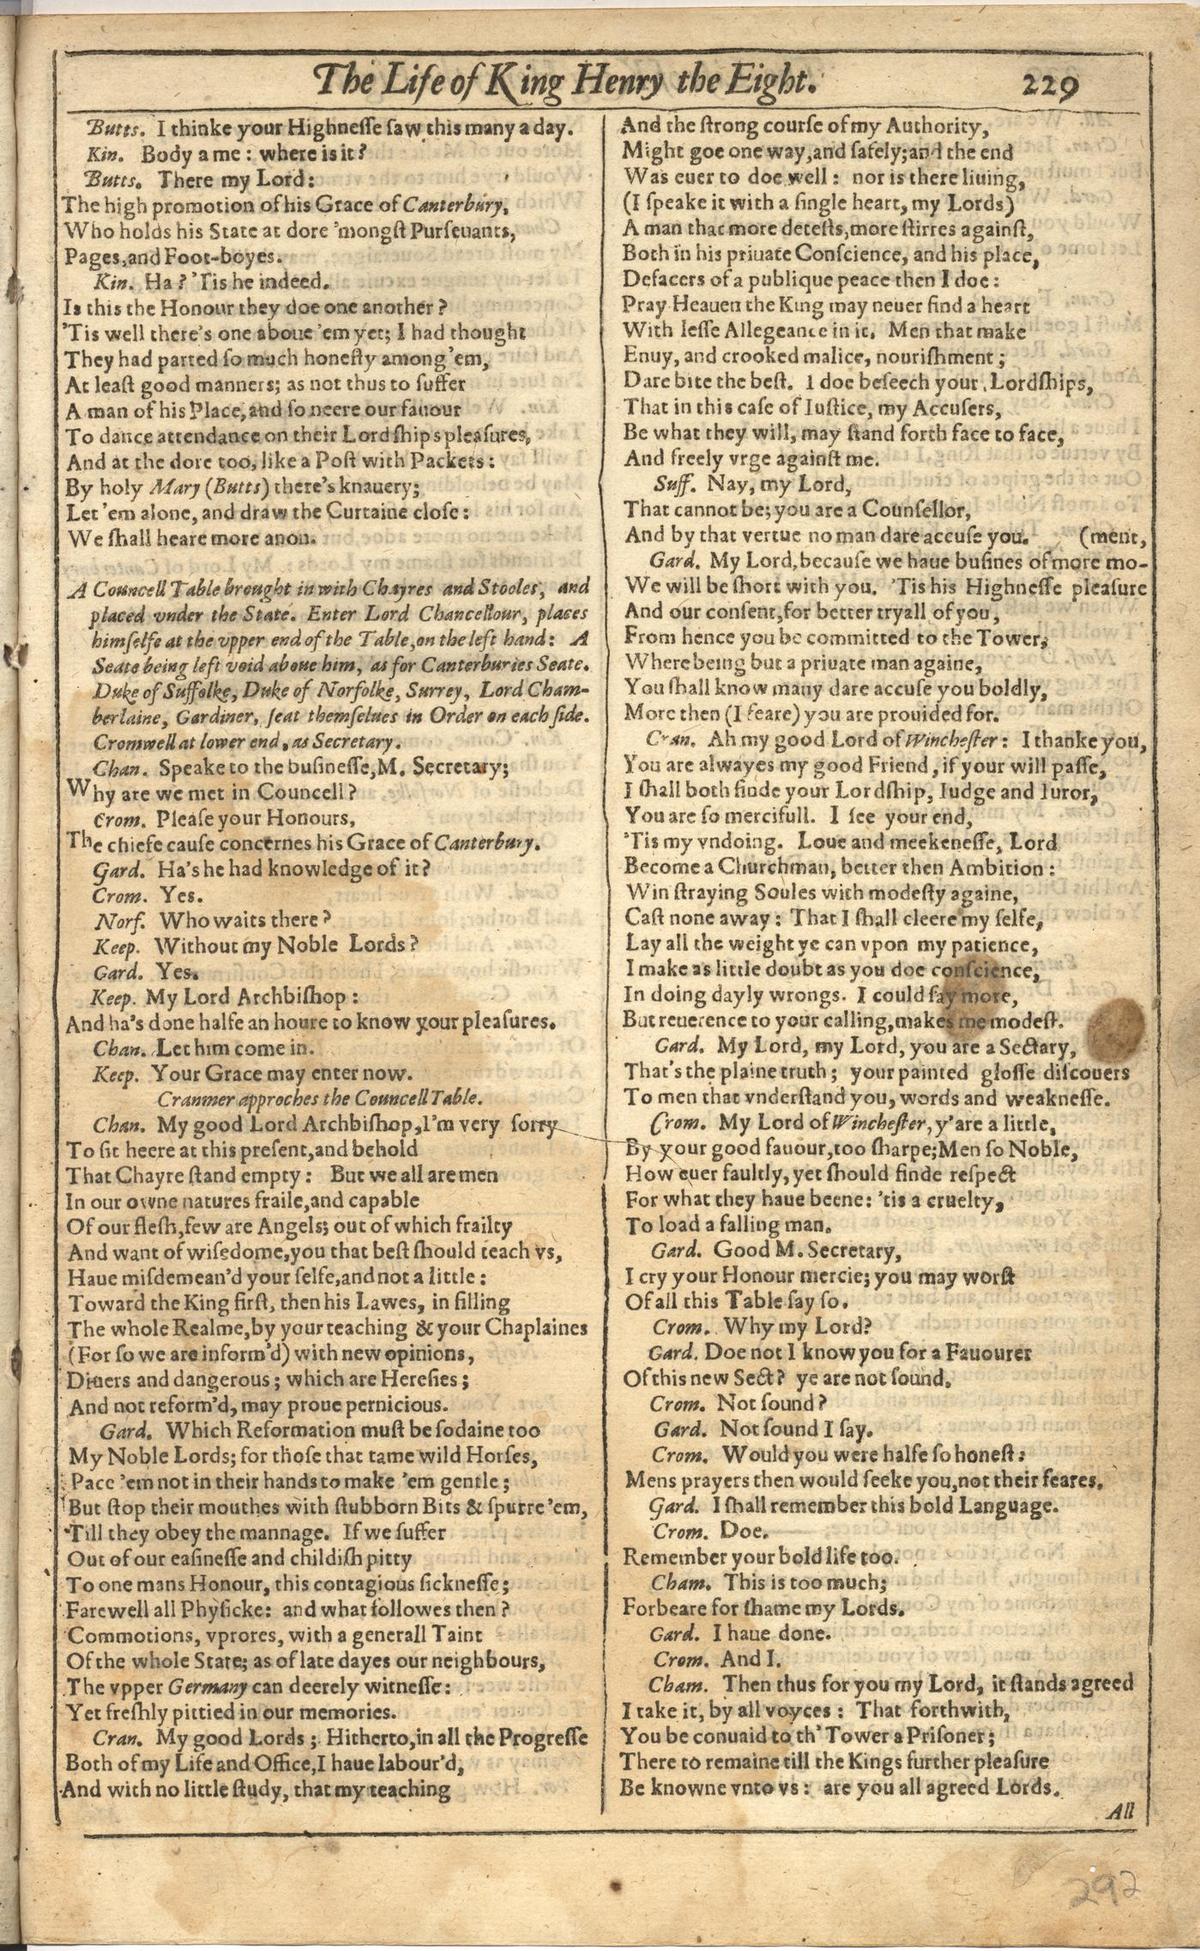 The Life of King Henry the Eight. 229
Butts. I thinke your Highnesse saw this many a day.
Kin. Body a me: where is it?
Butts. There my Lord:
The high promotion of his Grace of Canterbury,
Who holds his State at dore 'mongst Pursevants,
Pages, and Foot-boyes.
Kin. Ha? 'Tis he indeed.
Is this the Honour they doe one another?
'Tis well there's one aboue 'em yet; I had thought
They had parted so much honesty among 'em,
At least good manners; as not thus to suffer
A man of his Place, and so neere our fauour
To dance attendance on their Lordships pleasures,
And at the dore too, like a Post with Packets:
By holy Mary (Butts) there's knauery;
Let 'em alone, and draw the Curtaine close:
We shall heare more anon.
A Councell Table brought in with Chayres and Stooles, and
placed vnder the State. Enter Lord Chancellour, places
himselfe at the vpper end of the Table, on the left hand: A
Seate being left void aboue him, as for Canterburies Seate.
Duke of Suffolke, Duke of Norfolke, Surrey, Lord Cham-
berlaine, Gardiner, seat themselues in Order on each side.
Cromwell at lower end, as Secretary.
Chan. Speake to the businesse, M. Secretary;
Why are we met in Councell?
Crom. Please your Honours,
The chiefe cause concernes his Grace of Canterbury.
Gard. Ha's he had knowledge of it?
Crom. Yes.
Norf. Who waits there?
Keep. Without my Noble Lords?
Gard. Yes.
Keep. My Lord Archbishop:
And ha's done halfe an houre to know your pleasures.
Chan. Let him come in.
Keep. Your Grace may enter now.
Cranmer approches the Councell Table.
Chan. My good Lord Archbishop, I'm very sorry
To sit heere at this present, and behold
That Chayre stand empty: But we all are men
In our owne natures fraile, and capable
Of our flesh, few are Angels; out of which frailty
And want of wisedome, you that best should teach vs,
Haue misdemean'd your selfe, and not a little:
Toward the King first, then his Lawes, in filling
The whole Realme, by your teaching & your Chaplaines
(For so we are inform'd) with new opinions,
Diuers and dangerous; which are Heresies;
And not reform'd, may proue pernicious.
Gard. Which Reformation must be sodaine too
My Noble Lords; for those that tame wild Horses,
Pace 'em not in their hands to make 'em gentle;
But stop their mouthes with stubborn Bits & spurre 'em,
Till they obey the mannage. If we suffer
Out of our easinesse and childish pitty
To one mans Honour, this contagious sicknesse;
Farewell all Physicke: and what followes then?
Commotions, vprores, with a generall Taint
Of the whole State; as of late dayes our neighbours,
The vpper Germany can deerely witnesse:
Yet freshly pittied in our memories.
Cran. My good Lords; Hitherto, in all the Progresse
Both of my Life and Office, I haue labour'd,
And with no little study, that my teaching
And the strong course of my Authority,
Might goe one way, and safely; and the end
Was euer to doe well: nor is there liuing,
(I speake it with a single heart, my Lords)
A man that more detests, more stirres against,
Both in his priuate Conscience, and his place,
Defacers of a publique peace then I doe:
Pray Heauen the King may neuer find a heart
With lesse Allegeance in it. Men that make
Enuy, and crooked malice, nourishment;
Dare bite the best. I doe beseech your, Lordships,
That in this case of Iustice, my Accusers,
Be what they will, may stand forth face to face,
And freely vrge against me.
Suff. Nay, my Lord,
That cannot be; you are a Counsellor,
And by that vertue no man dare accuse you. (ment,
Gard. My Lord, because we haue busines of more mo-
We will be short with you. 'Tis his Highnesse pleasure
And our consent, for better tryall of you,
From hence you be committed to the Tower,
Where being but a priuate man againe,
You shall know many dare accuse you boldly,
More then (I feare) you are prouided for.
Cran. Ah my good Lord of Winchester: I thanke you,
You are alwayes my good Friend, if your will passe,
I shall both finde your Lordship, Iudge and Iuror,
You are so mercifull. I see your end,
'Tis my vndoing. Loue and meekenesse, Lord
Become a Churchman, better then Ambition:
Win straying Soules with modesty againe,
Cast none away: That I shall cleere my selfe,
Lay all the weight ye can vpon my patience,
I make as little doubt as you doe conscience,
In doing dayly wrongs. I could say more,
But reuerence to your calling, makes me modest.
Gard. My Lord, my Lord, you are a Sectary,
That's the plaine truth; your painted glosse discouers
To men that vnderstand you, words and weaknesse.
Crom. My Lord of Winchester, y'are a little,
By your good fauour, too sharpe; Men so Noble,
How euer faultly, yet should finde respect
For what they haue beene: 'tis a cruelty,
To load a falling man.
Gard. Good M. Secretary,
I cry your Honour mercie; you may worst
Of all this Table say so.
Crom. Why my Lord?
Gard. Doe not I know you for a Fauourer
Of this new Sect? ye are not sound.
Crom. Not sound?
Gard. Not sound I say.
Crom. Would you were halfe so honest:
Mens prayers then would seeke you, not their feares.
Gard. I shall remember this bold Language.
Crom. Doe.
Remember your bold life too.
Cham. This is too much;
Forbeare for shame my Lords.
Gard. I haue done.
Crom. And I.
Cham. Then thus for you my Lord, it stands agreed
I take it, by all voyces: That forthwith,
You be conuaid to th' Tower a Prisoner;
There to remaine till the Kings further pleasure
Be knowne vnto vs: are you all agreed Lords.
All
292